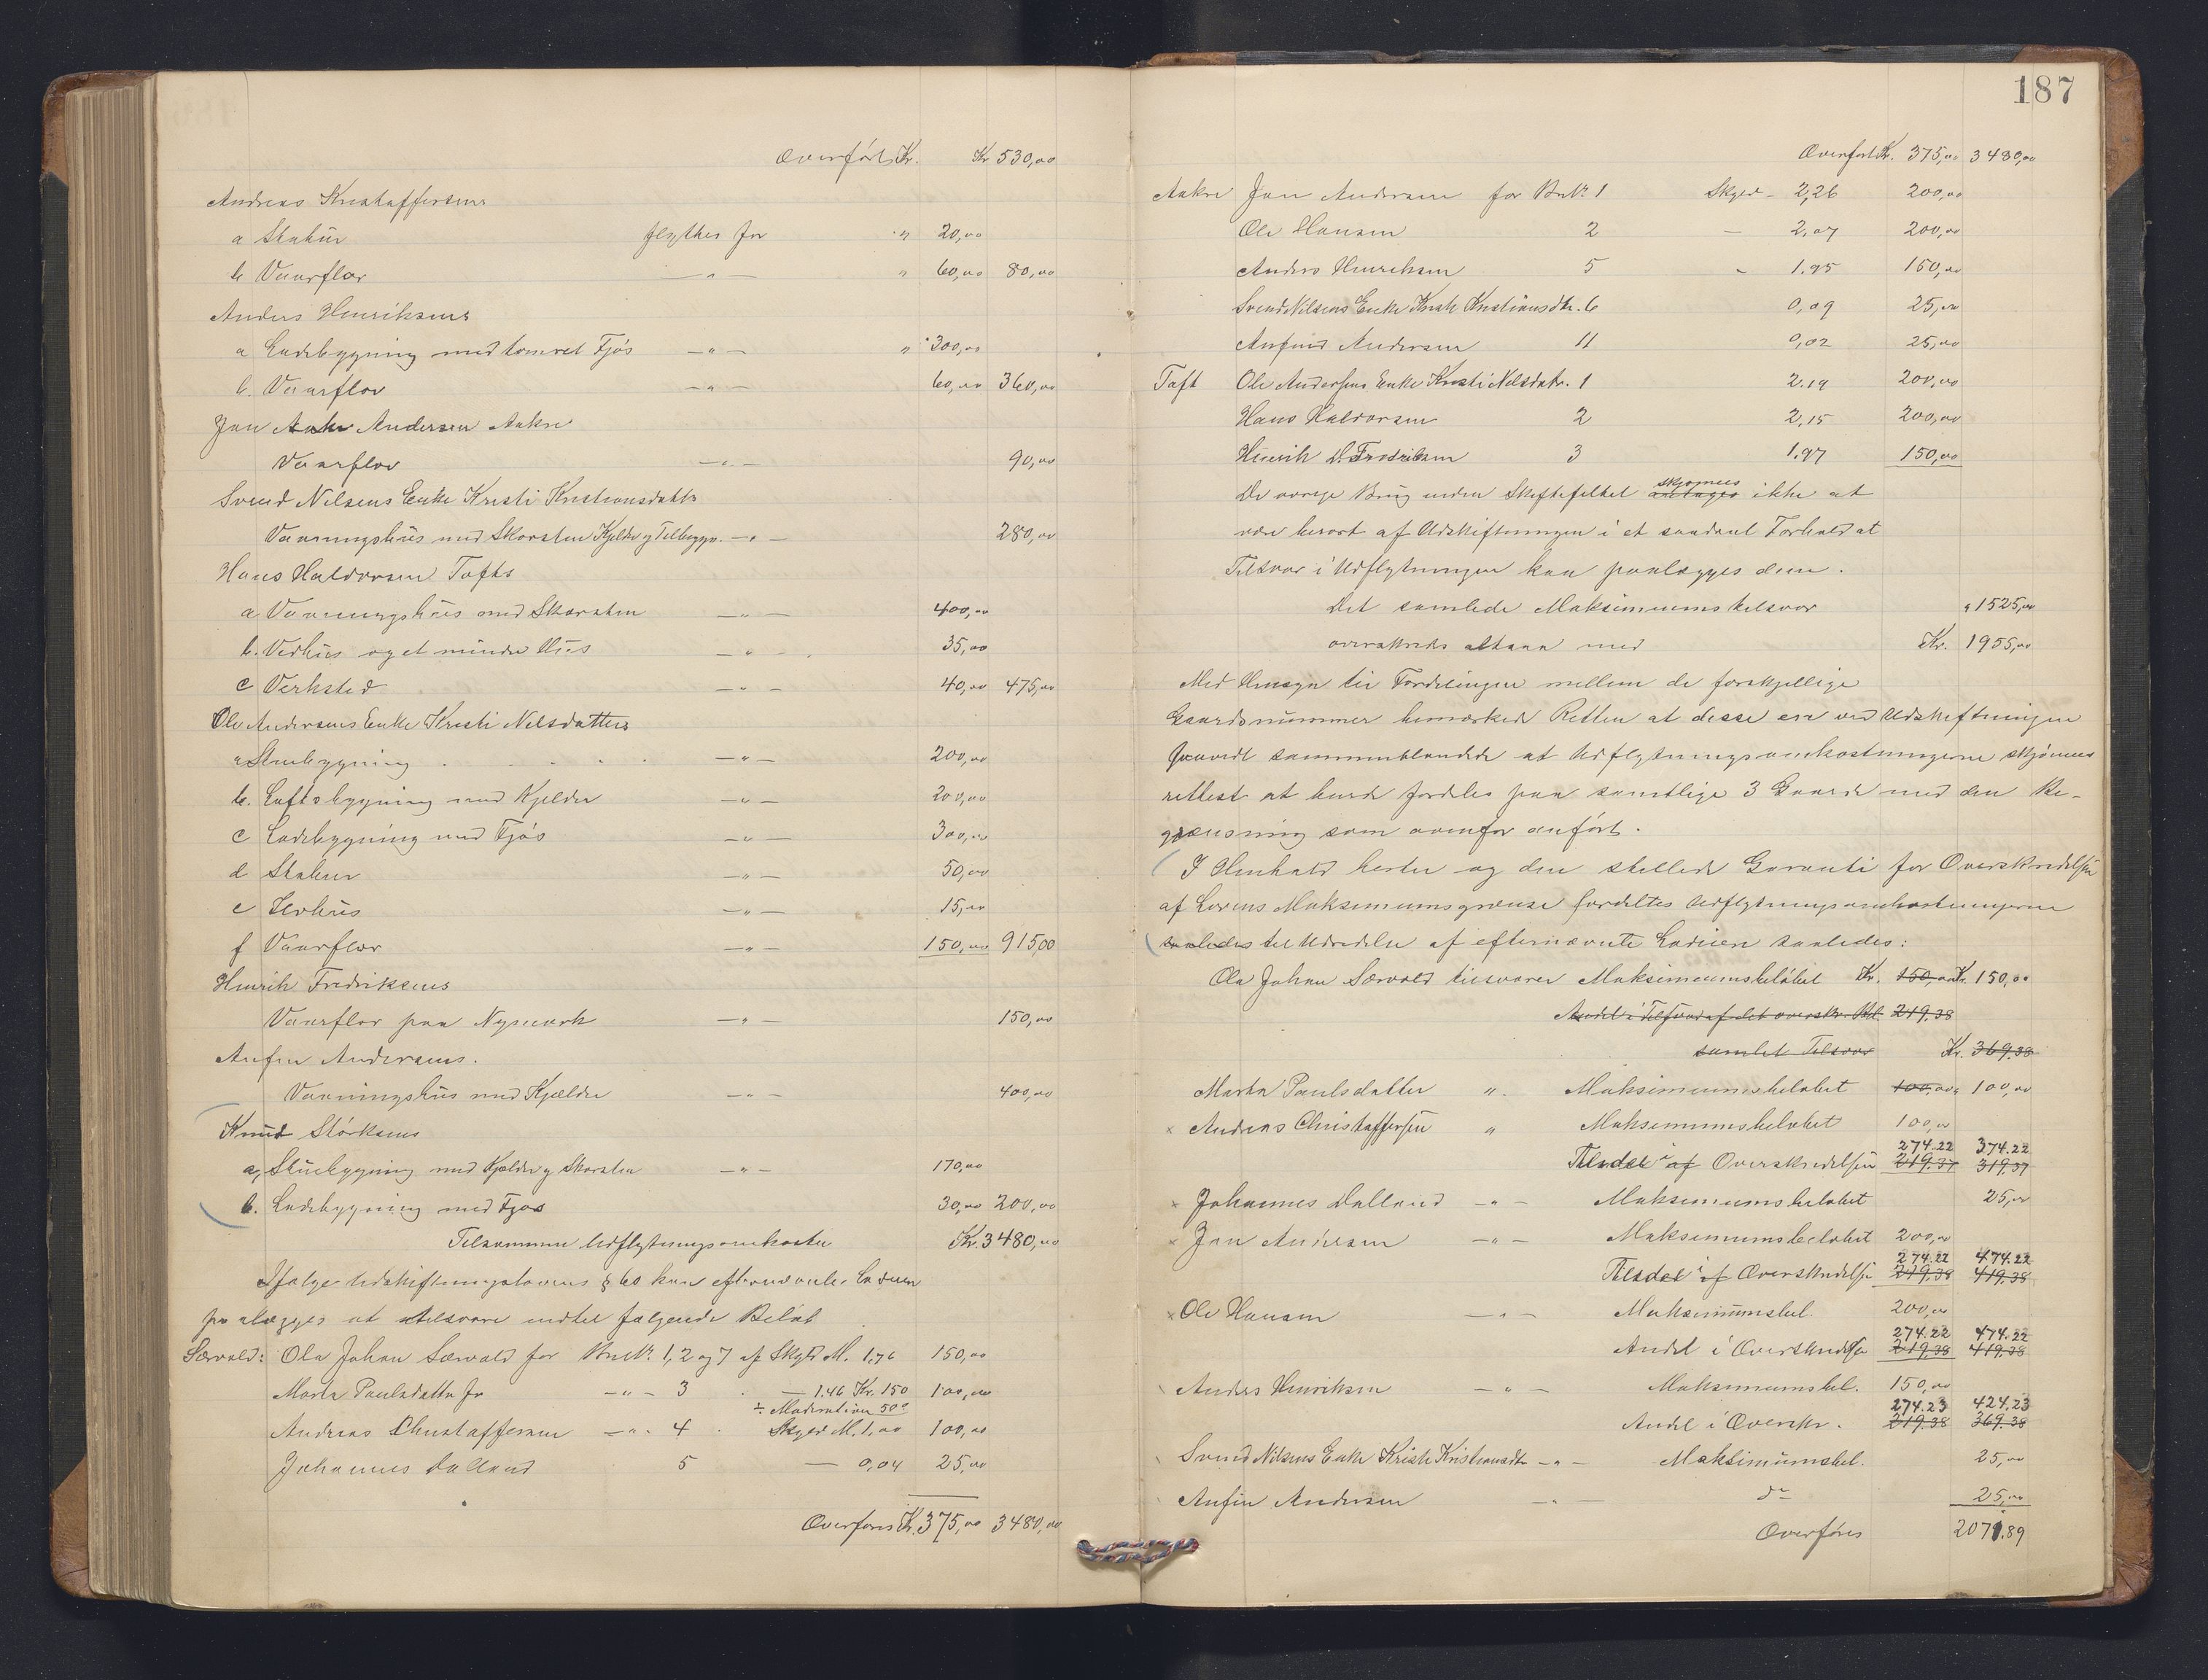 Overført Kr. Kr 530,00
Andreas Kristaffersens
a Stabur flyttes for " 20,00
b Vaarflor — " — " 60,00 80,00
Anders Henriksens
a Ladebygning med tomret Fjøs — " — " 300,00
b. Vaarflor — " — 60,00 360,00
Jon Andersen Aakre
Vaarflor — " — 90,00
Svend Nilsens Enke Kristi Kristiansdatter
Vaaningshus med Skorsten Kjelder og Tilbygn. — " — 280,00
Hans Haldorsen Tofts
a Vaaningshus med Skorsten — " — 400,00
b. Vedhus og et mindre Hus — " — 35,00
c Verksted — " — 40,00 475,00
Ole Andersens Enke Kristi Nelsdatters
a Stuebygning — " — 200,00
b. Loftsbygning med Kjelder — " — 200,00
c Ladebygning med Fjøs — " — 300,00
d Stabur — " — 50,00
e Ildhus — " — 15,00
f Vaarflor — " — 150,00 915,00
Henrik Fredriksens
Vaarflor paa Nymark — " — 150,00
Anfin Andersens.
Vaaningshus med Kjælder — " — 400,00
Knud Størksens
a, Stuebygning med Kjelder og Skorsten — " — 170,00
b. Ladebygning med Fjøs 30,00 200,00
Tilsammen Udflytningsomkoster Kr. 3480,00
Ifølge Udskiftningslovens § 60 kan efternævnte Lodeiere
paalægges at tilsvare indtil følgende Beløb
Særvold: Ola Johan Særvold for Bno. 1, 2 og 7 af Skyld M. 1.76 150,00
Marta Paulsdatter for — " — 3 — 1.46 Kr. 150 100,00
÷ Moderation 50
Andreas Christaffersen — " — 4 Skyld M. 1,00 100,00
Johannes Dalland 5 — 0,04 25,00
Overføres Kr. 375,00 3480,00
187
Overført Kr. 375,00 3480,00
Aakre Jon Andersen for Bno. 1 Skyld - 2,26 200,00
Ole Hansen 2 — 2,07 200,00
Anders Henriksen 5 - 1.95 150,00
Svend Nilsens Enke Kristi Kristiansdtr. 6 0,09 25,00
Anfind Andersen 11 0,02 25,00
Toft Ole Andersens Enke Kristi Nelsdatr. 1 2.19 200,00
Hans Haldorsen 2 2,15 200,00
Henrik D. Fredriksen 3 1.97 150,00
De øvrige Brug under Skiftefeltet antages skjønnes ikke at
være berørt af Udskiftningen i et saadant Forhold at
Tilsvar i Udflytningen kan paalægges dem.
Det samlede Maksimumstilsvar " 1525,00
overskrides altsaa med Kr. 1955,00
Med Hensyn til Fordelingen mellem de forskjellige
Gaardsnummer bemærkede Retten at disse er ved Udskiftningen
saavidt sammenblandede at Udflytningsomkostningerne skjønnes
rettest at burde fordeles paa samtlige 3 Gaarde med den Be-
grænsning som ovenfor anført.
I Henhold hertil og den stillede Garanti for Overskridelsen
af Lovens Maksimumsgrænse fordeltes Udflytningsomkostningerne
saaledes til Udredelse af efternævnte Lodeiere saaledes:
Ola Johan Særvold tilsvarer Maksimumsbeløbet Kr. 150,00 Kr. 150,00
Andel i Tilsvar af det overskr. Bel. 219,38
samlet Tilsvar Kr. 369,38
Marta Paulsdatter " Maksimumsbeløbet 100,00 " 100,00
× Andreas Christaffersen " Maksimumsbeløbet 100,00
274.22 374.22
Andel i af Overskridelsen 219.37 319.37
× Johannes Dalland — " — Maksimumsbeløbet 25,00
× Jon Andersen — " — Maksimumsbeløbet 200,00
274.22 474.22
Andel i af Overskridelsen 219.38 419.38
× Ole Hansen — " — Maksimumsbel. 200,00
274.22 474.22
Andel i Overskridelsen 219.38 419.38
Anders Henriksen — " — Maksimumsbel. 150,00
274.23 424.23
Andel i Overskr. 219.38 369.38
Svend Nilsens Enke Kristi Kristiansdtr — " — Maksimumsbel. 25,00
Anfin Andersen — " — do 25,00
Overføres 2071.89